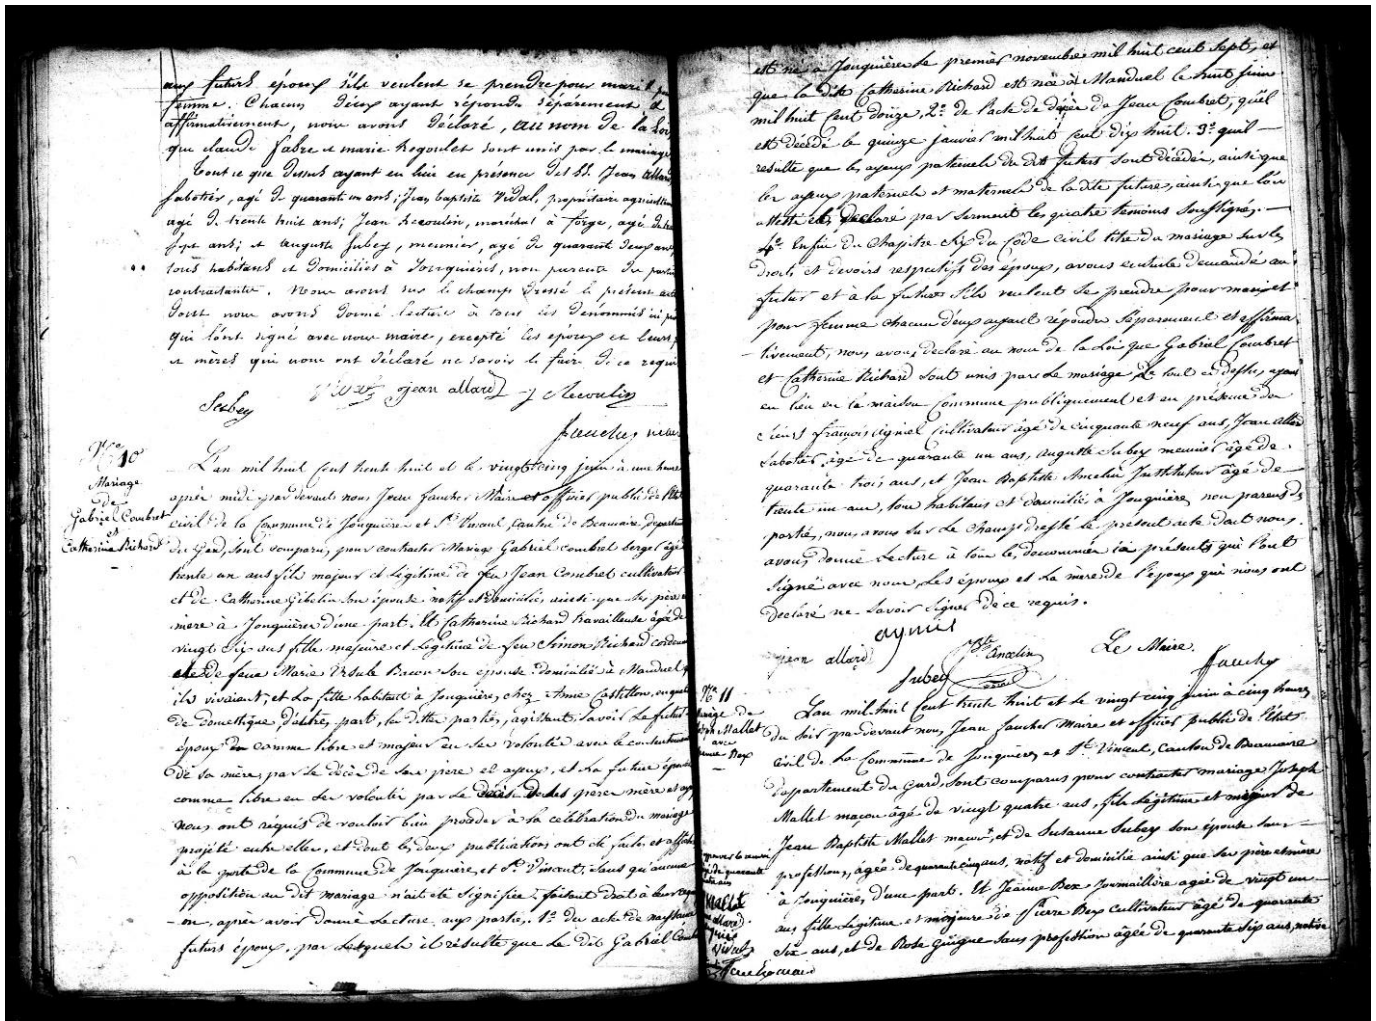 aux futurs époux s'ils veulent se prendre pour mari et
femme. Chacun d'eux ayant répondu séparément &
affirmativement, nous avons déclaré, au nom de la Loi,
que claude fabre et marie Regoulet sont unis par le mariage
Tout ce que dessus ayant eu lieu en présence des SS. Jean allard
sabotier, agé de quarante un ans; Jean baptiste Vidal, propriétaire agriculteur
agé de trente huit ans; Jean Recoulin, maréchal à forge, agé de
sept ans; et auguste Subey, meunier, agé de quarante deux ans
tous habitans et domiciliés à Jonquières, non parents des parties
contractantes. Nous avons sur le champ dressé le présent acte
dont nous avons donné lecture à tous les dénommés ici
qui l'ont signé avec nous maire, excepté les époux et leurs
et mères qui nous ont déclaré ne savoir le faire de ce requis
Vidal jean allard J Recoulin
Subey
fauchez maire
N.o 10
Mariage
de
Gabriel Combret
et
Catherine Richard
L'an mil huit cent trente huit et le vingt cinq juin à une heure
après midi par devant nous Jean fauchez Maire et officier public de l'état
civil de la Commune de Jonquières et St. Vincent, Canton de Beaucaire, département
du Gard, sont comparus pour contracter Mariage Gabriel Combret berger agé
trente un ans fils majeur et légitime de feu Jean Combret cultivateur
et de Catherine Gibelin son épouse natif et domiciliés ainsi que ses père
mère à Jonquières d'une part. Et Catherine Richard travailleuse agée de
vingt six ans fille majeure et légitime de feu Simon Richard
et de feue Marie Ursule son épouse domiciliés à Manduel
ils vivaient, et la fille habitant à Jonquières, chez Anne Castillon, en qualité
de domestique, d'autre part, les dittes parties, agissant, savoir le futur
époux comme libre et majeur en ses volontés avec le consentement
de sa mère, par le décès de son père et ayeux, et la future épouse
comme libre en ses volontés par le décès de ses père et mère et
nous ont requis de vouloir bien procéder à la célébration du mariage
projeté entre elles, et dont les deux publications ont été faites et affichées
à la porte de la Commune de Jonquières, et St. Vincent. Sans qu'aucune
opposition au dit mariage n'ait été signifiée, faisant droit à leur
on, après avoir donné Lecture aux parties, 1.o des actes de naissance
futurs époux, par lesquels il résulte que le dit Gabriel Combret
est né à Jonquières le premier novembre mil huit cent sept, et
que la dite Catherine Richard est née à Manduel le huit juin
mil huit cent douze, 2.o de l'acte de décès de Jean Combret, qu'il
est décédé le quinze janvier mil huit cent dix huit. 3.o qu'il
résulte que les ayeux paternels du dit futur sont décédés, ainsi que
les ayeux paternels et maternels de la dite future, ainsi que l'ont
attesté et déclaré par serment les quatre temoins soussignés,
4.o Enfin du Chapitre six du Code civil titre du mariage sur les
droits et devoirs respectifs des époux, avons ensuite demandé au
futur et à la future s'ils veulent se prendre pour mari et
pour femme chacun d'eux ayant répondu séparément et affirma
tivement, nous avons déclaré au nom de la Loi que Gabriel Combret
et Catherine Richard sont unis par le mariage, Le tout ci dessus ayant
eu lieu en la maison Commune publiquement et en présence des
sieurs françois Cultivateur âgé de cinquante neuf ans, Jean allard
Sabotier, âgé de quarante un ans, auguste Subey meunier, âgé de
quarante trois ans, et Jean Baptiste Amelin Instituteur âgé de
trente un ans, tous habitans et domiciliés à Jonquières non parents des
parties, nous avons sur le champ dressé le présent acte dont nous
avons donné Lecture à tous les dénommés ici présents qui l'ont
signé avec nous, les époux et la mère de l'époux qui nous ont
déclaré ne savoir signer de ce requis.
jean allard Bte Amelin Le Maire
Subey fauchez
N.o 11
Mallet
avec
Bex
L'an mil huit cent trente huit et le vingt cinq juin à cinq heures
du soir par devant nous Jean faucher Maire et officier public de l'État
Civil de la Commune de Jonquières et St. Vincent, Canton de Beaucaire
département du gard, sont comparus pour contracter mariage Joseph
Mallet maçon âgé de vingt quatre ans, fils légitime et majeur de
Jean Baptiste Mallet maçon, et de Susanne Subey son épouse sans
profession, âgée de quarante cinq ans, natif et domicilié ainsi que ses père et mère
à Jonquières, d'une part. Et Jeanne Bex Journalière agée de vingt un
ans fille légitime et majeure de Pierre Bex cultivateur âgé de quarante
six ans, et de Rose Guigue sans profession âgée de quarante six ans,
Mallet
allard
Vidal